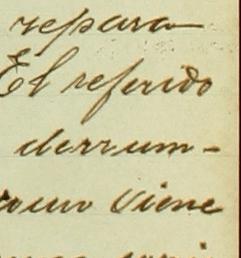 repara
El referido
derrum-
viene